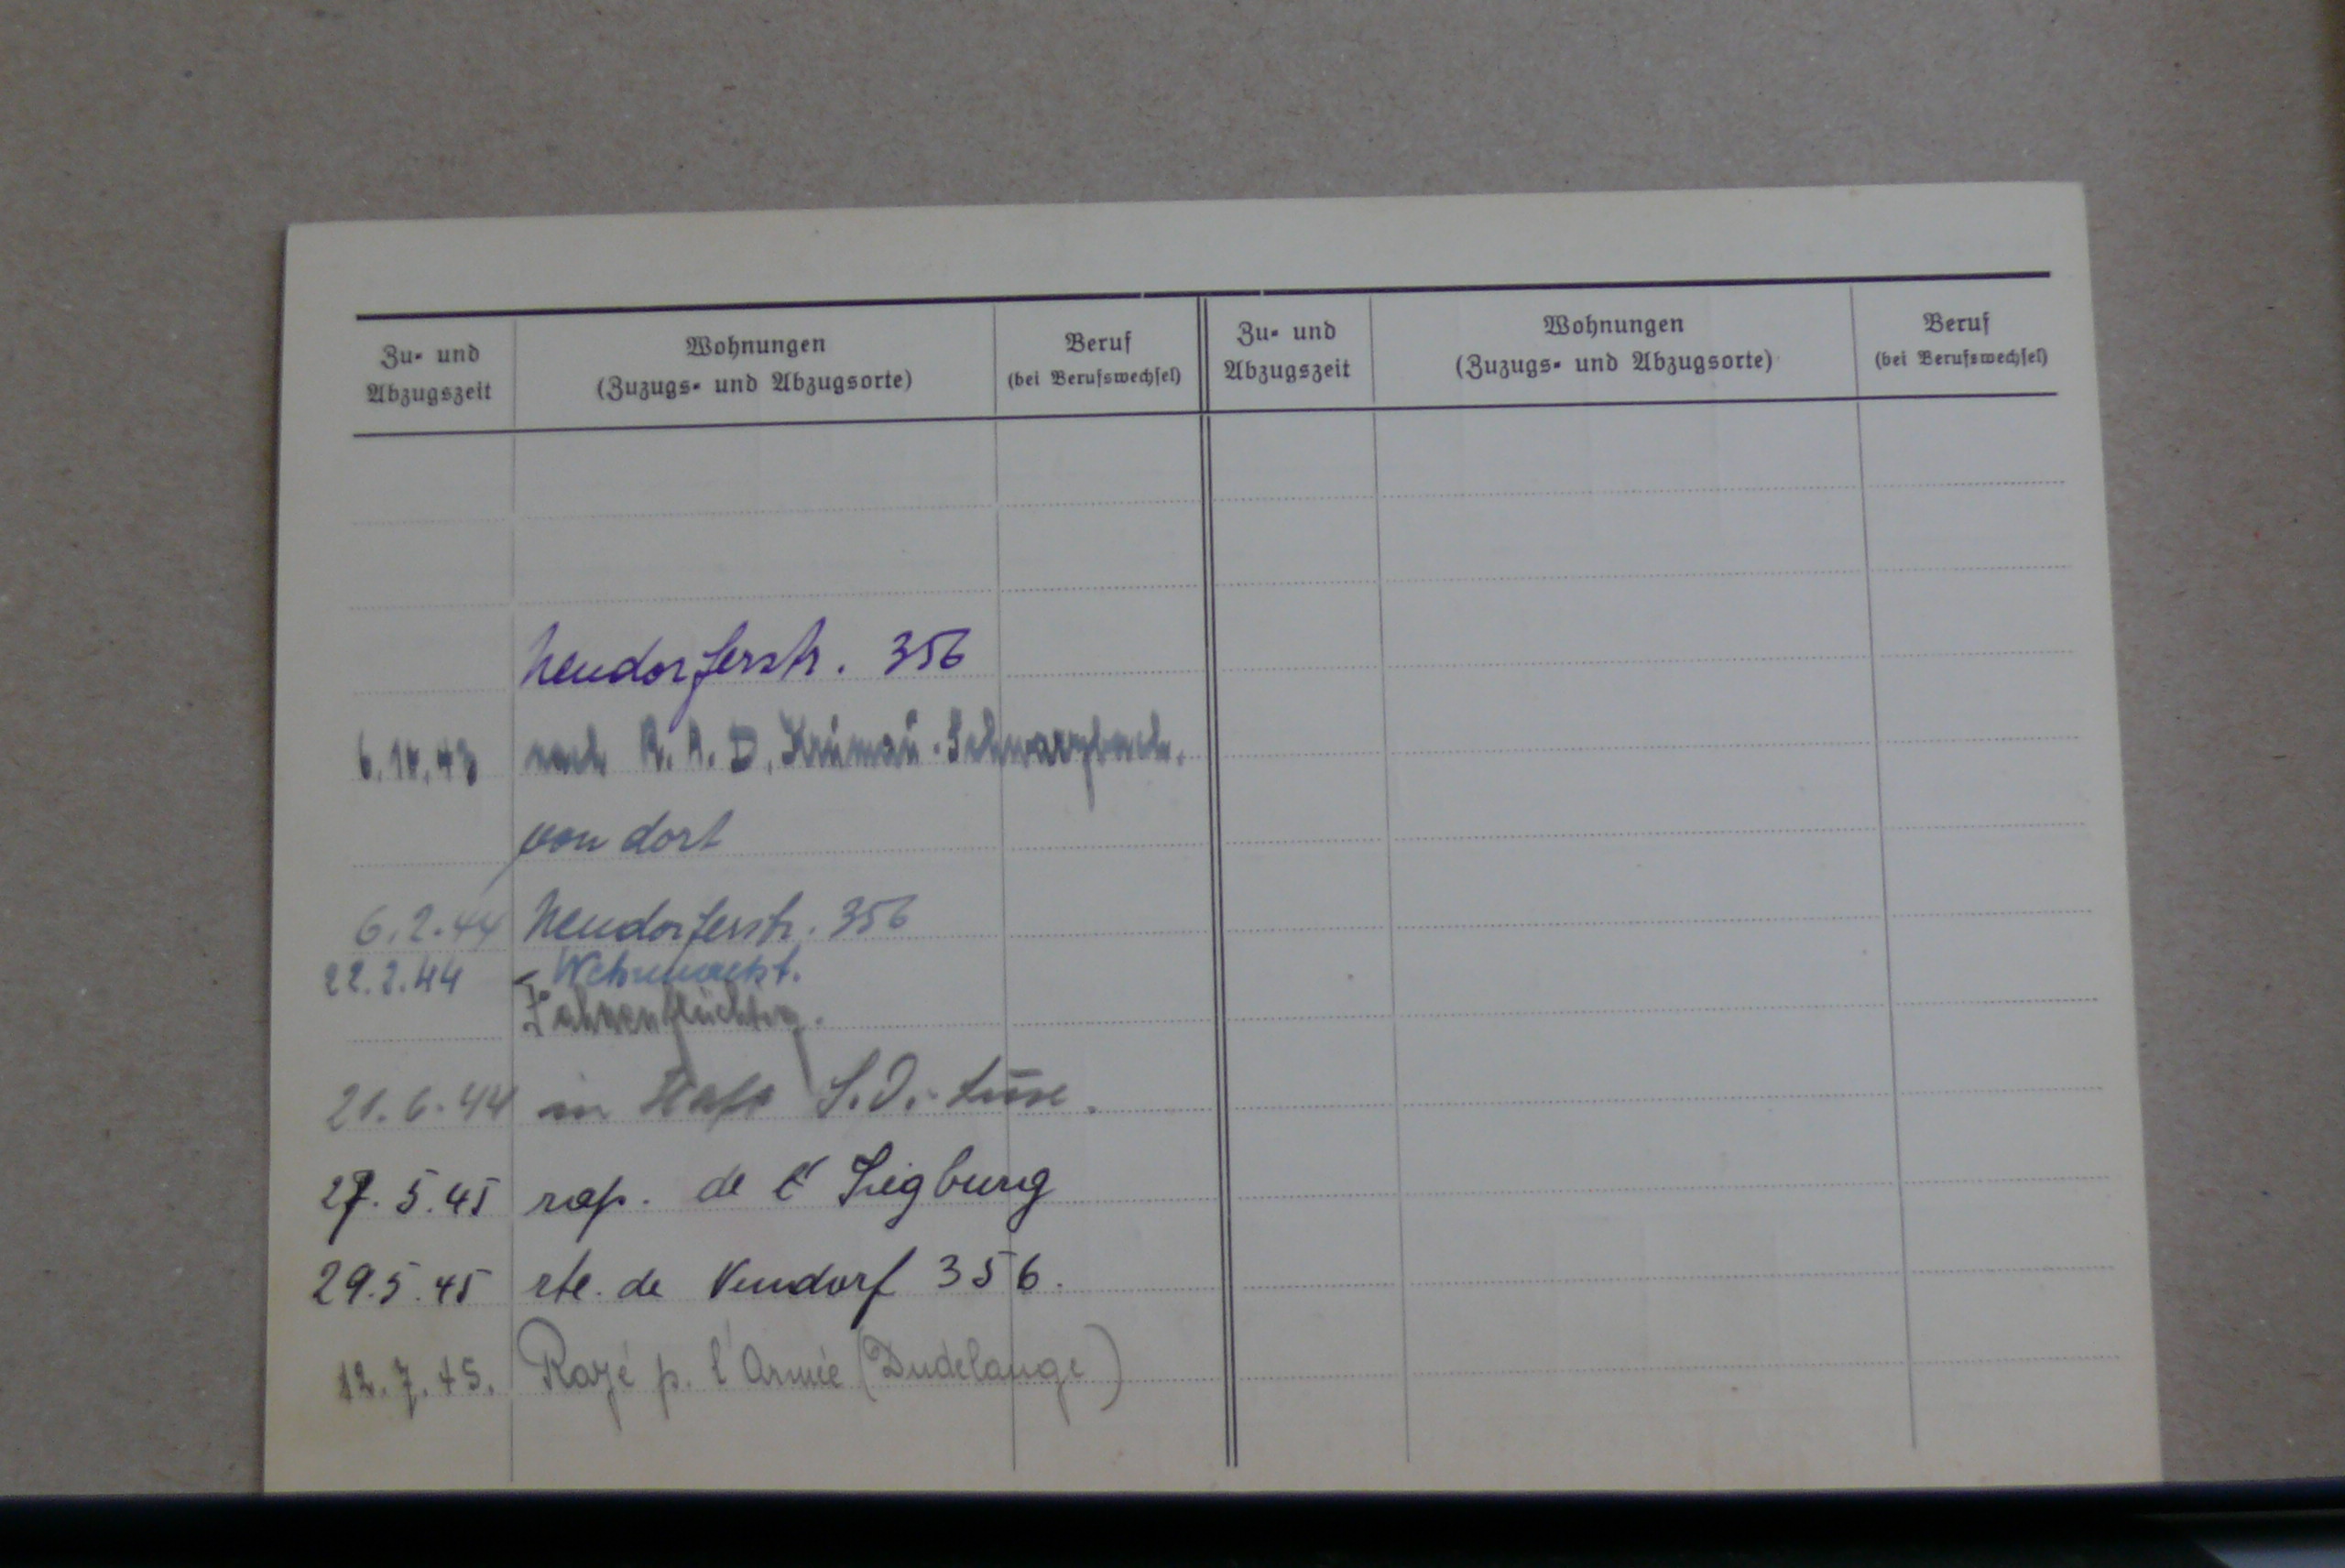 Zu- und Abzugszeit
Wohnungen (Zuzugs- und Abzugsorte)
Beruf (bei Berufswechsel)
Zu- und Abzugszeit
Wohnungen (Zuzugs- und Abzugsorte)
Beruf (bei Berufswechsel)
Neudorferstr. 356
6.10.43 nach R. A. D. Krumau-Schwarzbach.
von dort
6.2.44 Neudorferstr. 356
22.2.44 Wehrmacht.
Fahnenflüchtig.
21.6.44 in Haft S.D.
27.5.45 rap. de Siegburg
29.5.45 rte. de Neudorf 356.
12.7.45. Rayé p. l'Armée (Dudelange)